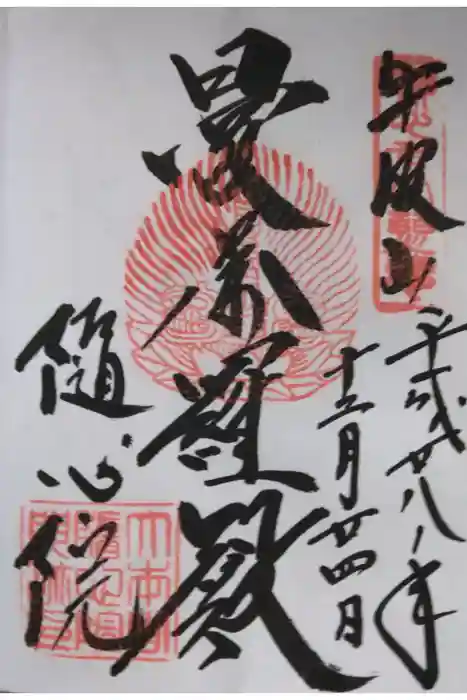 牛皮山
平成廿八年
十二月廿四日
曼荼羅殿
随心院